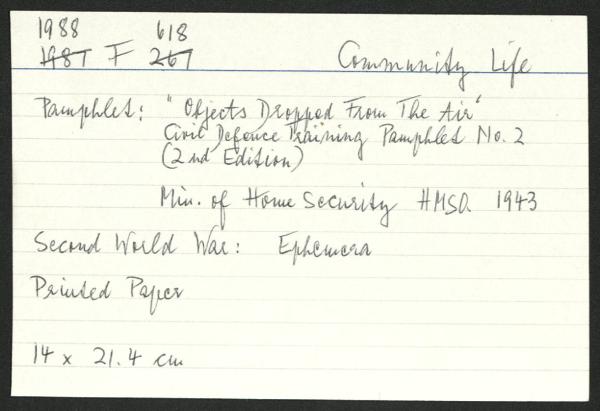 1988 618
1987 F 267 Community Life
Pamphlet: "Objects Dropped From The Air"
Civil Defence Training Pamphlet No. 2
(2nd Edition)
Min. of Home Security HMSO. 1943
Second World War: Ephemera
Printed Paper
14 x 21.4 cm